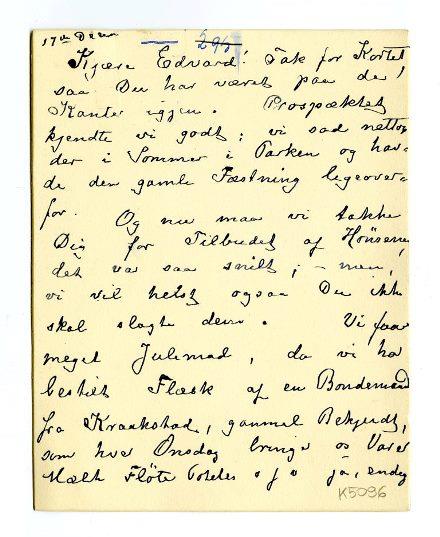 17de Decbr 295
Kjære Edvard! Tak for Kortet!
saa Du har været paa de
Kanter igjen. Prospæktet
kjendte vi godt; vi sad netto
der i Sommer i Parken og hav-
de den gamle Fæstning ligeover-
for. Og nu maa vi takke
Dig for Tilbudet af Hönsene,
det var saa snilt; – men,
vi vil helst ogsaa Du ikke
skal slagte dem. Vi faar
meget Julemad, da vi ha
bestilt Flæsk af en Bondemand
fra Kraakstad, gammel Bekjendt,
som hver Onsdag bringe os Varer
Mælk Flöte Potetes o s v ja, endog
K5096